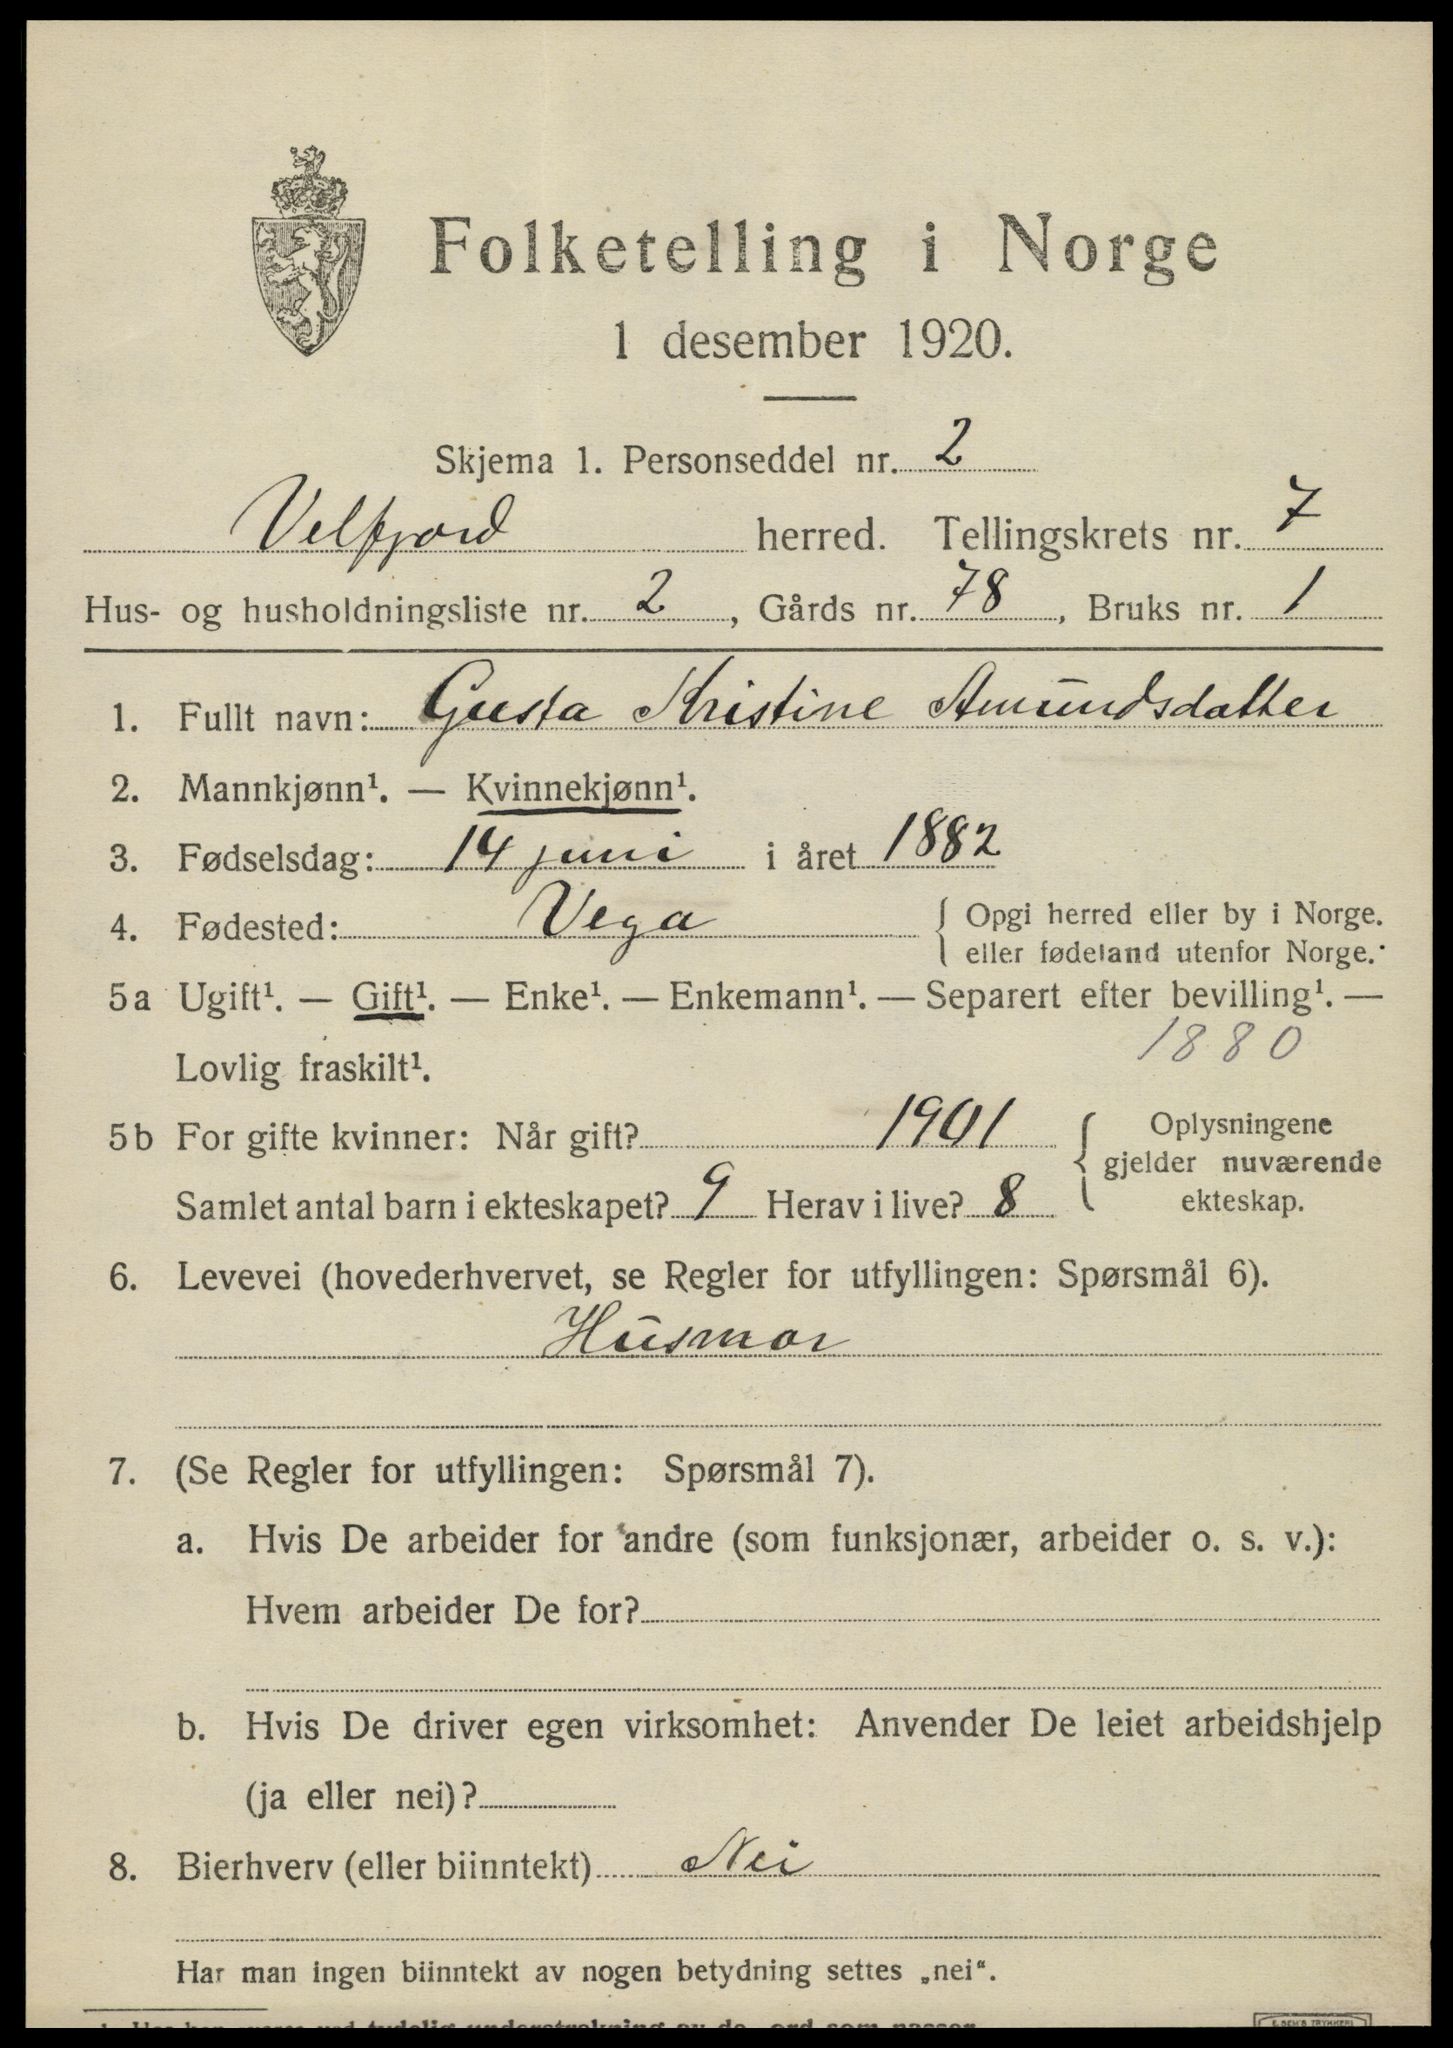 Folketelling i Norge
1 desember 1920.
Skjema 1. Personseddel nr. 2
Velfjord herred. Tellingskrets nr. 7
Hus- og husholdningsliste nr. 2, Gårds nr. 78, Bruks nr. 1
1. Fullt navn: Gusta Kristine Amundsdatter
2. Mannkjønn¹. — Kvinnekjønn¹.
3. Fødselsdag: 14 juni i året 1882
4. Fødested: Vega { Opgi herred eller by i Norge.
eller fødeland utenfor Norge.
5a Ugift¹. — Gift¹. — Enke¹. — Enkemann¹. — Separert efter bevilling¹. —
Lovlig fraskilt¹. 1880
5b For gifte kvinner: Når gift? 1901 { Oplysningene
gjelder nuværende
Samlet antal barn i ekteskapet? 9 Herav i live? 8 ekteskap.
6. Levevei (hovederhvervet, se Regler for utfyllingen: Spørsmål 6).
Husmor
7. (Se Regler for utfyllingen: Spørsmål 7).
a. Hvis De arbeider for andre (som funksjonær, arbeider o. s. v.):
Hvem arbeider De for?
b. Hvis De driver egen virksomhet: Anvender De leiet arbeidshjelp
(ja eller nei)?
8. Bierhverv (eller biinntekt) Nei
Har man ingen biinntekt av nogen betydning settes „nei“.